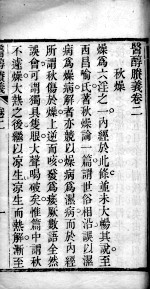 醫醇賸義卷二
秋燥
燥爲六淫之一內經於此條並未大暢其說至
西昌喻氏著秋燥論一篇謂世俗相沿誤以濕
病爲燥病解者亦競以燥病爲濕病而於內經
所謂秋傷於燥上逆而咳發爲痿厥數語全然
誤會可謂獨具隻眼大聲喝破矣惟篇中謂秋
不遽燥大熱之後繼以涼生涼生而熱解漸至
醫醇賸義
卷二